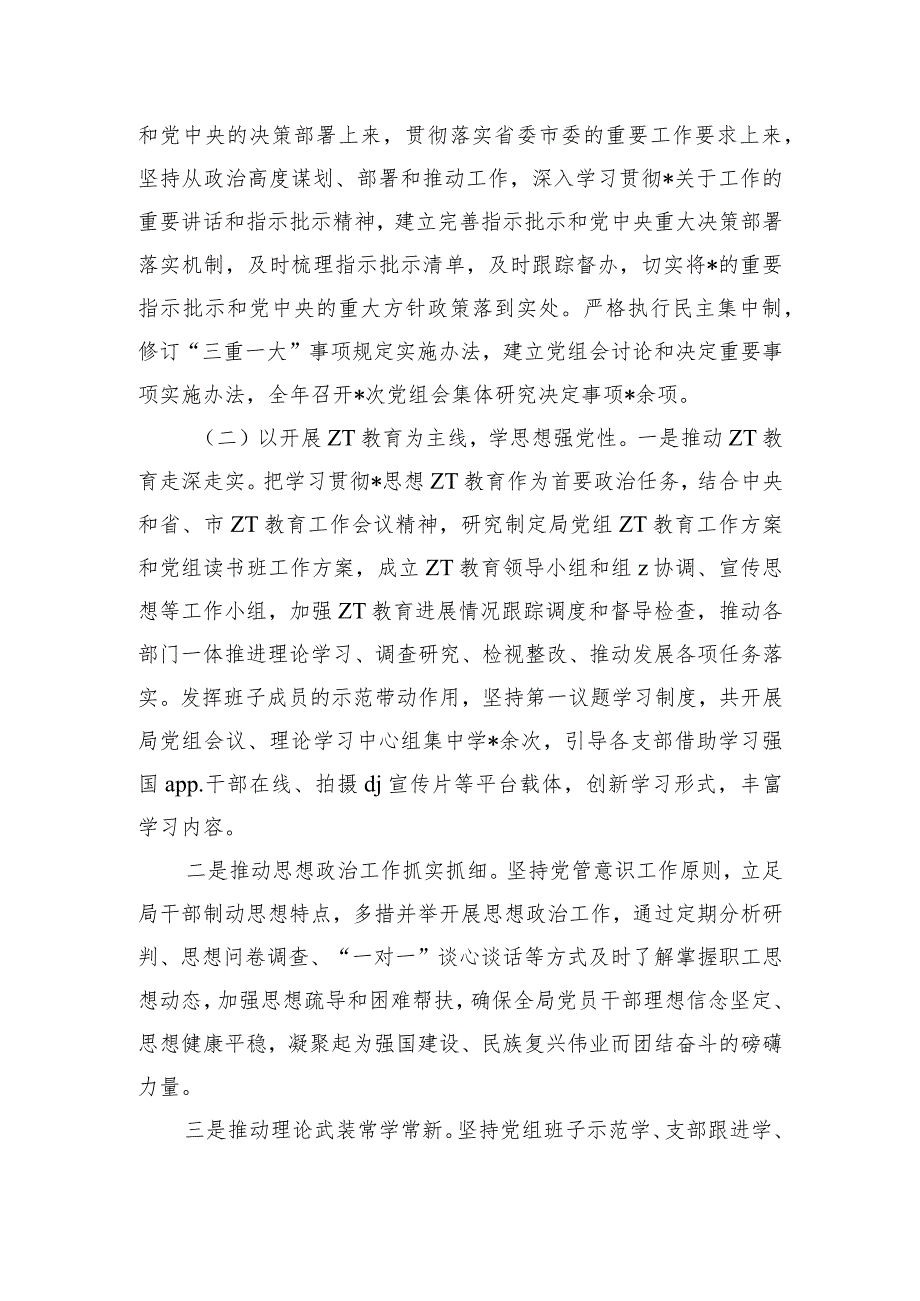 和党中央的决策部署上来，贯彻落实省委市委的重要工作要求上来，
坚持从政治高度谋划、部署和推动工作，深入学习贯彻*关于工作的
重要讲话和指示批示精神，建立完善指示批示和党中央重大决策部署
落实机制，及时梳理指示批示清单，及时跟踪督办，切实将*的重要
指示批示和党中央的重大方针政策落到实处。严格执行民主集中制，
修订“三重一大”事项规定实施办法，建立党组会讨论和决定重要事
项实施办法，全年召开*次党组会集体研究决定事项*余项。
（二）以开展 ZT 教育为主线，学思想强党性。一是推动 ZT 教
育走深走实。把学习贯彻*思想 ZT 教育作为首要政治任务，结合中央
和省、市 ZT 教育工作会议精神，研究制定局党组 ZT 教育工作方案
和党组读书班工作方案，成立 ZT 教育领导小组和组 z 协调、宣传思
想等工作小组，加强 ZT 教育进展情况跟踪调度和督导检查，推动各
部门一体推进理论学习、调查研究、检视整改、推动发展各项任务落
实。发挥班子成员的示范带动作用，坚持第一议题学习制度，共开展
局党组会议、理论学习中心组集中学*余次，引导各支部借助学习强
国 app.干部在线、拍摄 dj 宣传片等平台载体，创新学习形式，丰富
学习内容。
二是推动思想政治工作抓实抓细。坚持党管意识工作原则，立足
局干部制动思想特点，多措并举开展思想政治工作，通过定期分析研
判、思想问卷调查、“一对一”谈心谈话等方式及时了解掌握职工思
想动态，加强思想疏导和困难帮扶，确保全局党员干部理想信念坚定、
思想健康平稳，凝聚起为强国建设、民族复兴伟业而团结奋斗的磅礴
力量。
三是推动理论武装常学常新。坚持党组班子示范学、支部跟进学、